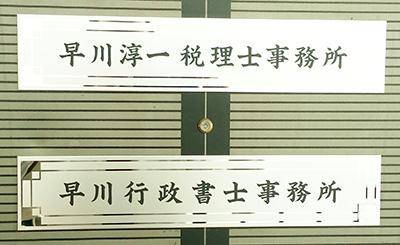 早川淳一税理士事務所
早川行政書士事務所